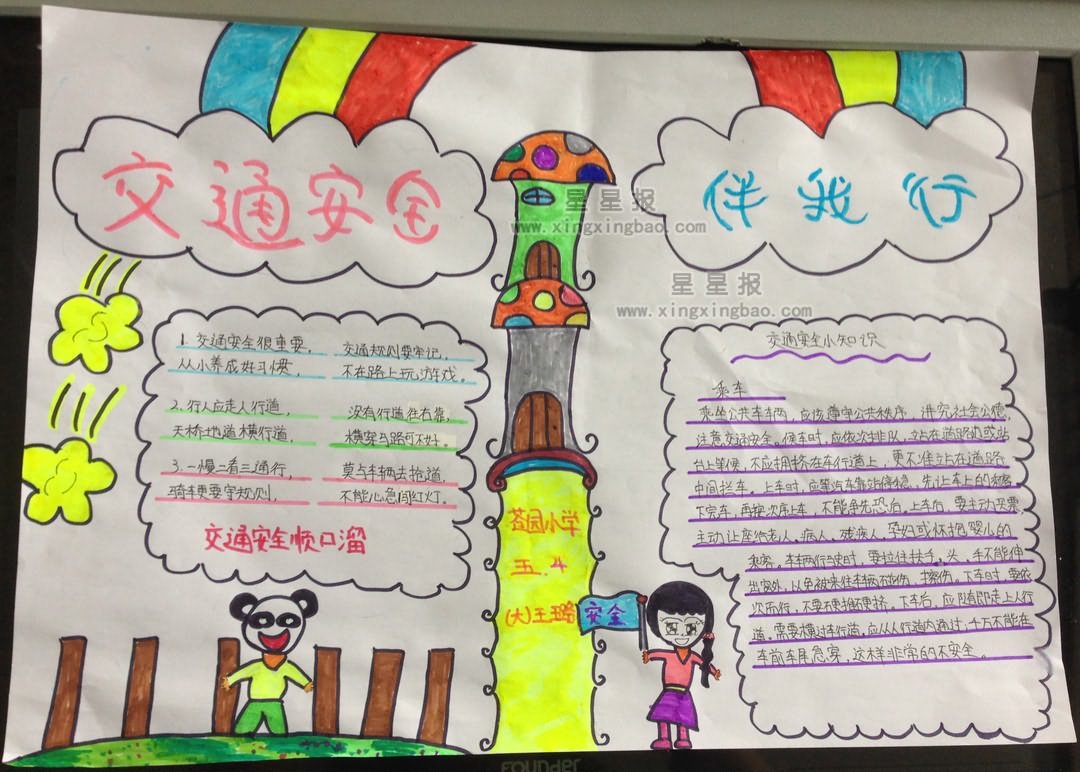 交通安全
伴我行
星星报
www.xingxingbao.com
星星报
www.xingxingbao.com
1. 交通安全很重要, 交通规则要牢记,
从小养成好习惯, 不在路上玩游戏。
2. 行人应走人行道, 没有行道往右靠,
天桥地道横行道, 横穿马路可不好。
3. 一慢二看三通行, 莫与车辆去抢道,
骑车更要守规则, 不能心急闯红灯。
交通安全顺口溜
茶园小学
五.4
(大)王璐
安全
交通安全小知识
乘车
乘坐公共车辆,应该遵守公共秩序,讲究社会公德,
注意交通安全。候车时,应依次排队,站在道路边或站
台上等候,不应拥挤在车行道上,更不准站在道路
中间拦车。上车时,应等汽车靠站停稳,先让车上的乘客
下完车,再按次序上车,不能争先恐后。上车后,要主动买票,
主动让座给老人、病人、残疾人、孕妇或怀抱婴儿的
乘客。车辆行驶时,要拉住扶手,头、手不能伸
出窗外,以免被来往车辆碰伤、擦伤。下车时,要依
次而行,不要硬推硬挤。下车后,应随即走上人行
道。需要横过车行道,应从人行道内通过,千万不能在
车前车尾急穿,这样非常的不安全。
Founder